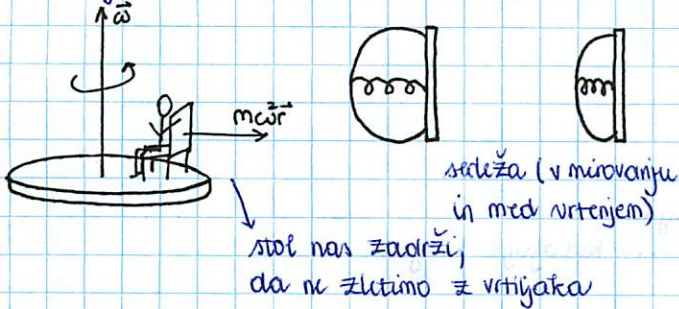 ω⃗
mω²r⃗
sedeža (v mirovanju
in med vrtenjem)
stol nas zadrži,
da ne zletimo z vrtiljaka